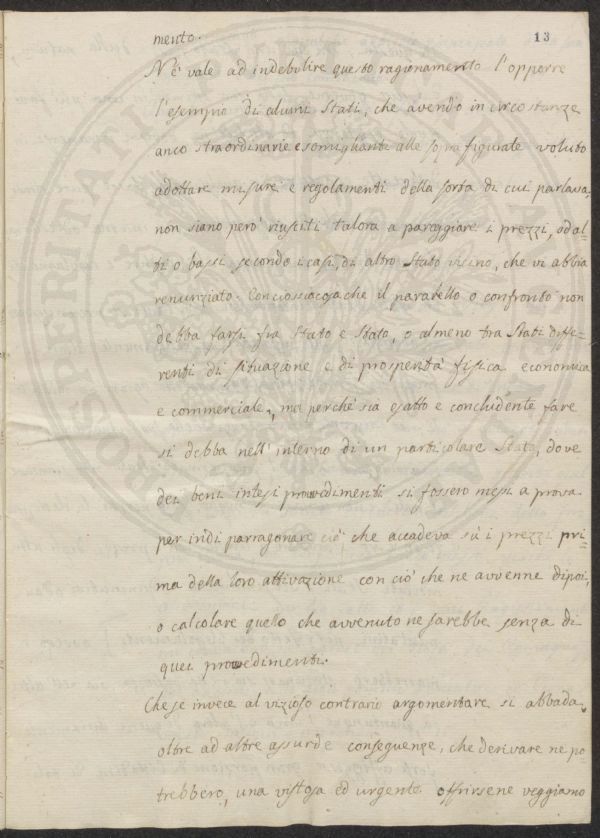 13
mento.
Nè vale ad indebolire questo ragionamento l'opporre
l'esempio di alcuni Stati, che avendo in circostanze
anco straordinarie e somiglianti alle sopra figurate voluto
adottare misure e regolamenti della sorta di cui parlasi,
non siano però riusciti talora a pareggiare i prezzi, od al-
ti o bassi secondo i casi, di altro Stato vicino, che vi abbia
renunziato. Conciossiacosache il paralello o confronto non
debba farsi fra Stato e Stato, o almeno tra Stati diffe-
renti di situazione e di prosperità fisica economica
e commerciale, ma perchè sia esatto e concludente fare
si debba nell'interno di un particolare Stato, dove
dei beni intesi provedimenti si fossero messi a prova
per indi parragonare ciò che accadeva sù i prezzi pri-
ma della loro attivazione con ciò che ne avvenne dipoi,
o calcolare quello che avvenuto ne sarebbe senza di
quei provedimenti.
Che se invece al vizioso contrario argomentare si abbada,
oltre ad altre assurde conseguenze, che derivare ne po-
trebbero, una vistosa ed urgente offrirsene veggiamo
PROSPERITATI